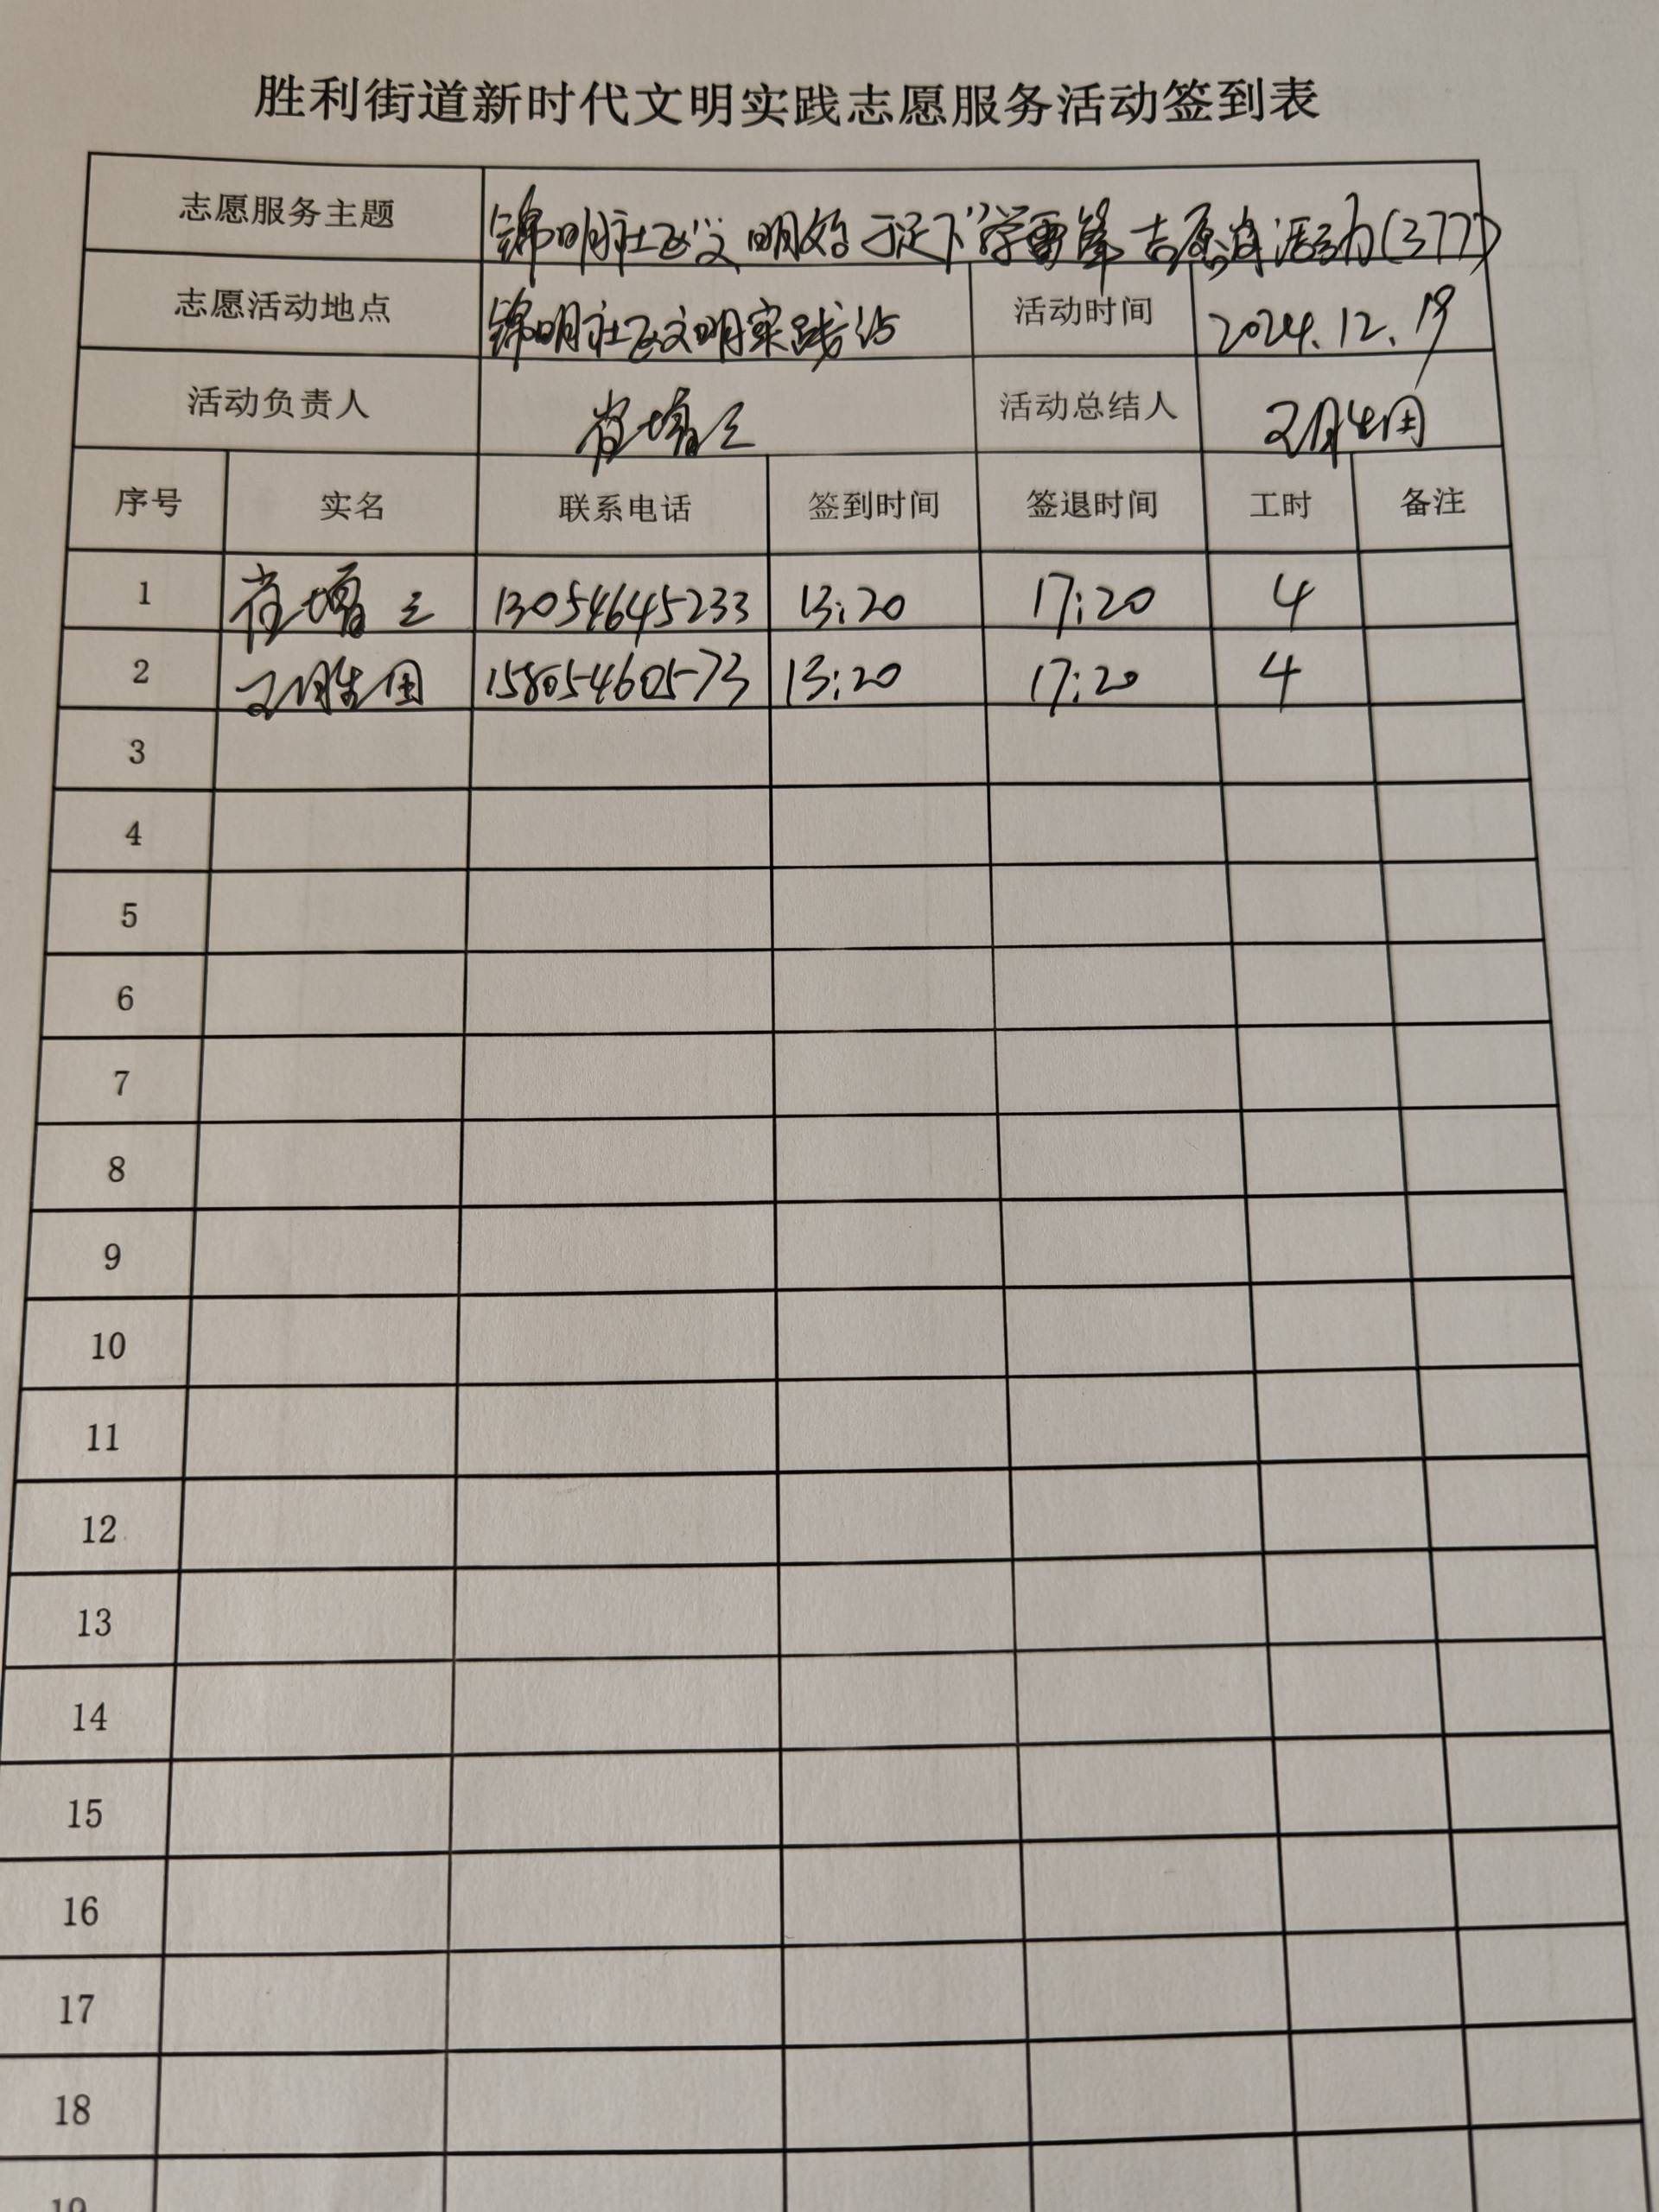 胜利街道新时代文明实践志愿服务活动签到表
志愿服务主题 锦明社区"文明始于足下"学雷锋志愿者活动(377)
志愿活动地点 锦明社区文明实践站 活动时间 2024.12.19
活动负责人 活动总结人
序号 实名 联系电话 签到时间 签退时间 工时 备注
1 13054645233 13:20 17:20 4
2 15805460573 13:20 17:20 4
3
4
5
6
7
8
9
10
11
12
13
14
15
16
17
18
19